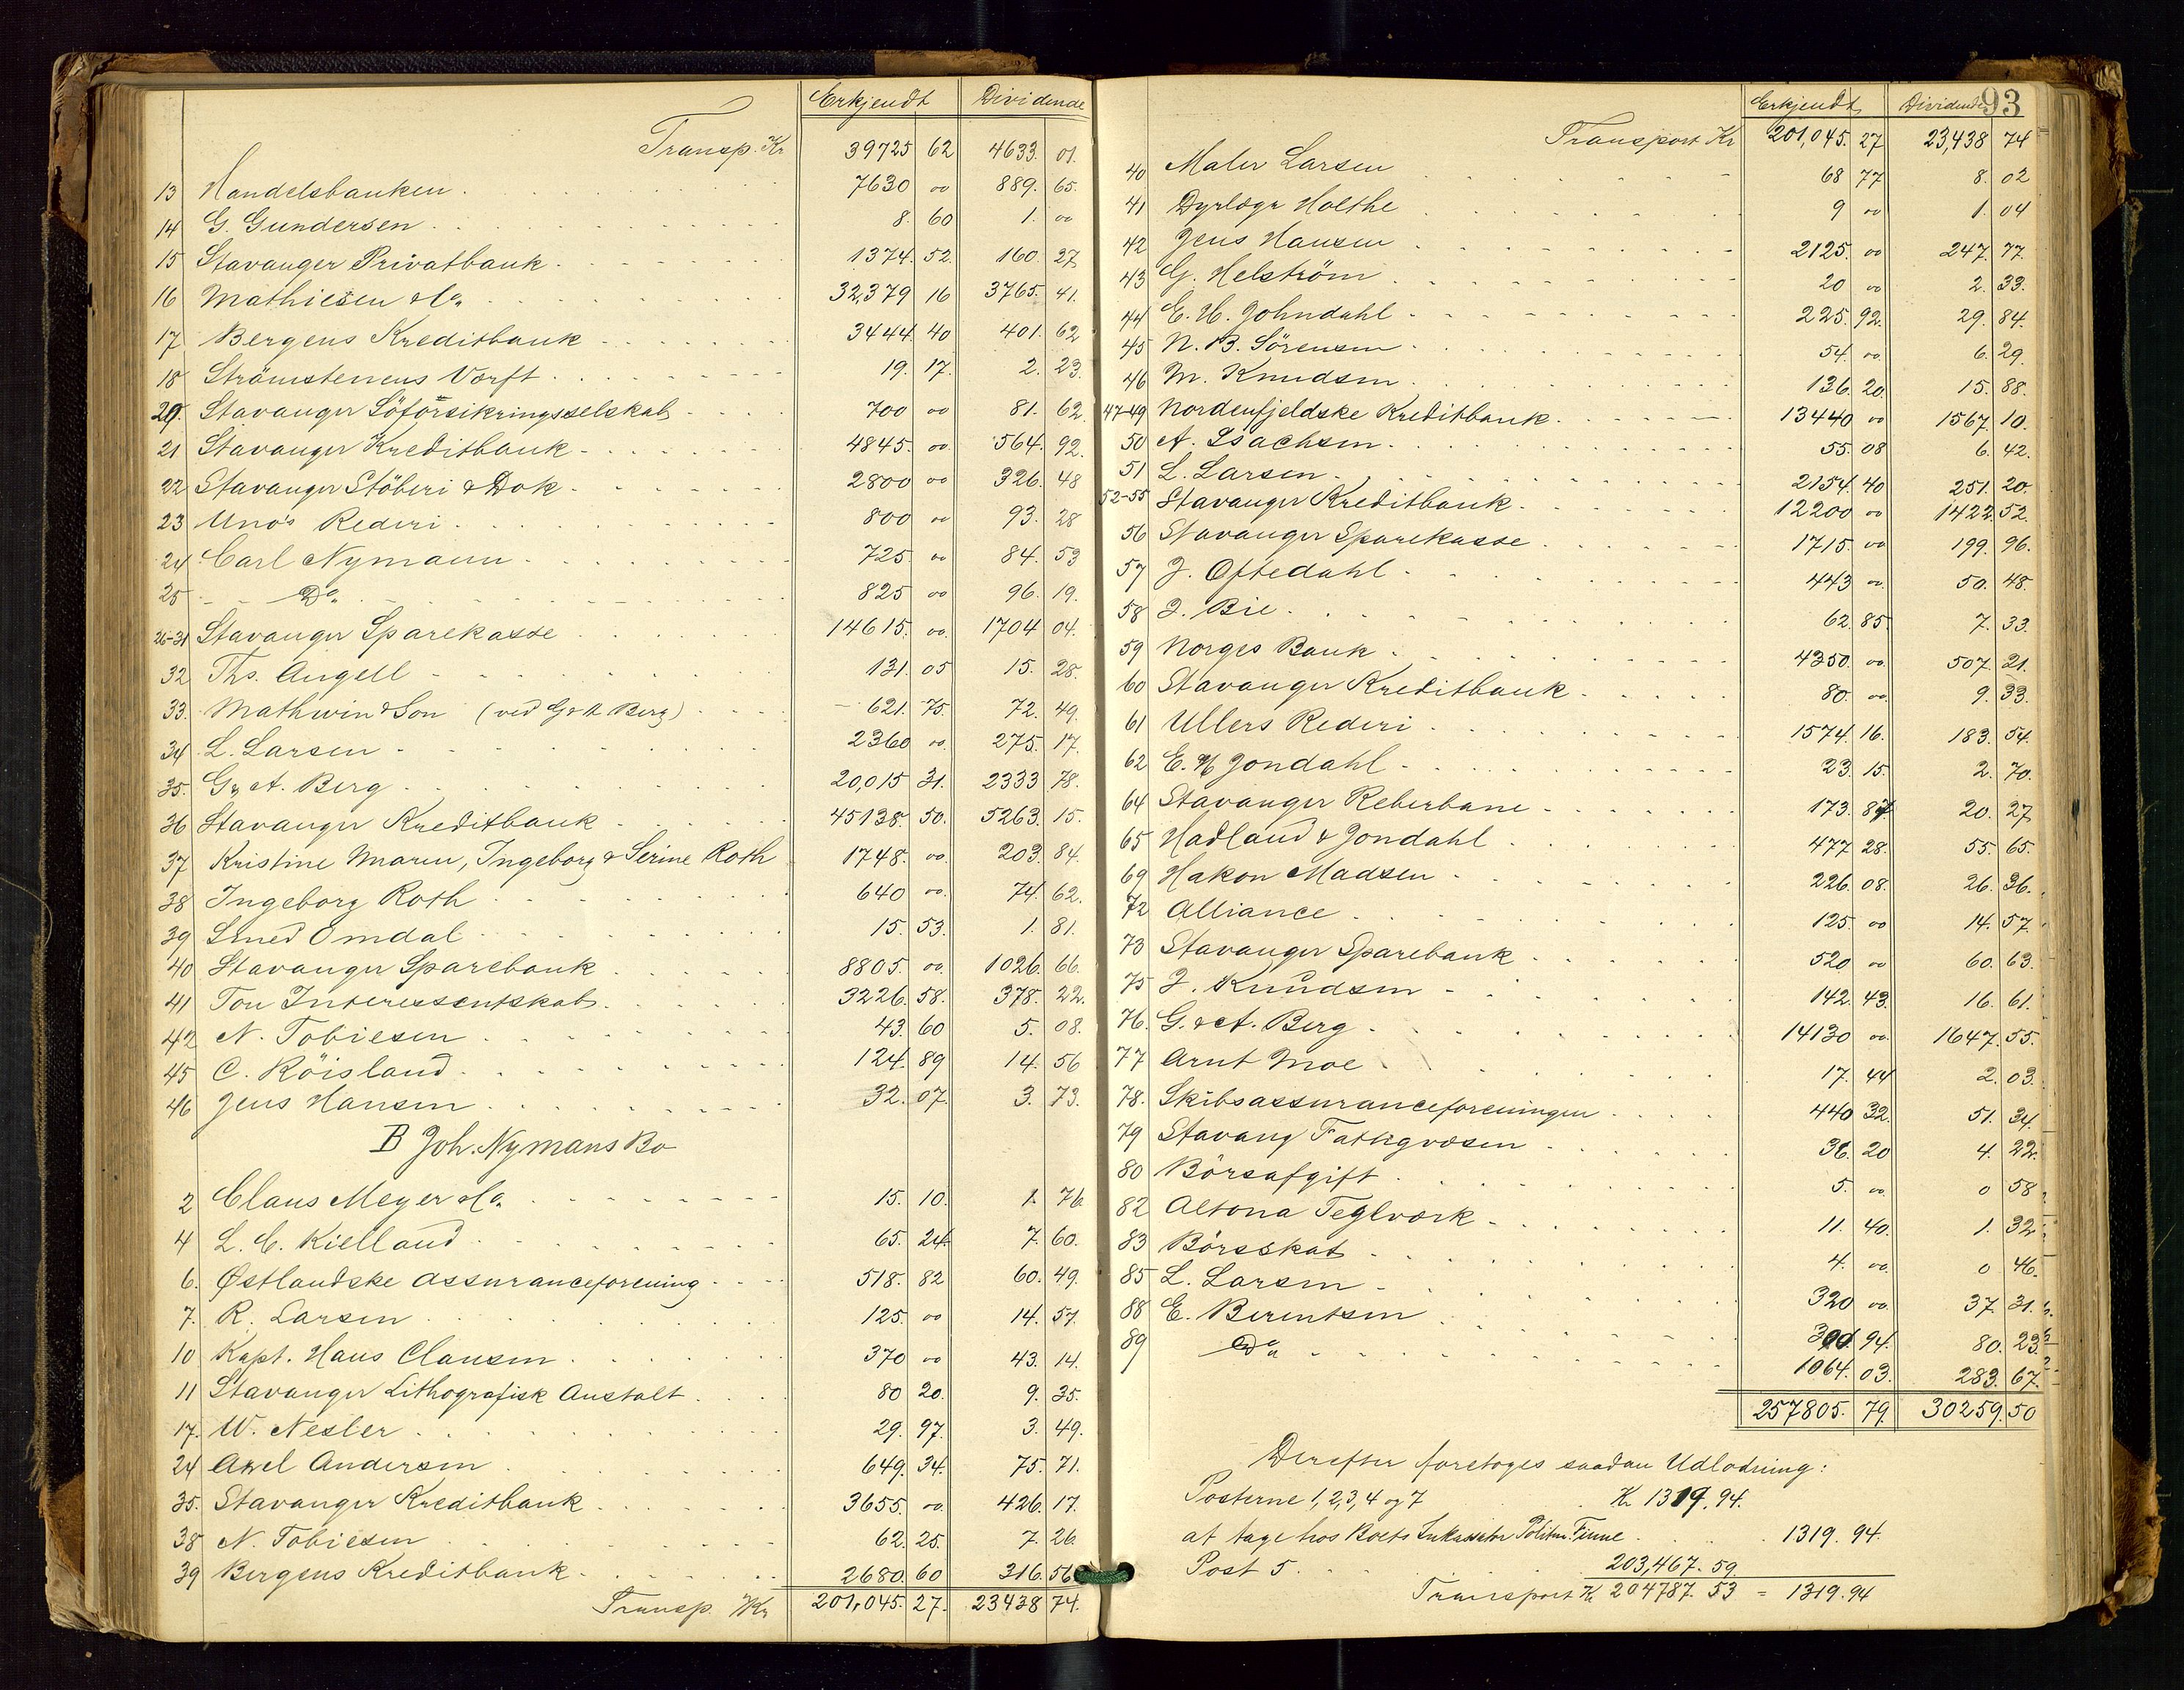 Erkjendt Dividende
Transp. Kr 39725 62 4633. 01.
13 Handelsbanken 7630 00 889. 65.
14 G. Gundersen 8. 60 1. 00
15 Stavanger Privatbank 1374. 52. 160. 27
16 Mathiesen & Co. 32,379 16 3765. 41.
17 Bergens Kreditbank 3444. 40 401. 62
18 Strömstenens Værft 19. 17. 2. 23.
20. Stavanger Söforsikringsselskab 700 00 81. 62
21 Stavanger Kreditbank 4845. 00. 564. 92.
22 Stavanger Stöberi & Dok 2800 00 326. 48
23 Uno's Rederi 800 00 93. 28
24 Carl Nymann 725 00 84. 53
25 - Do. 825 00 96. 19.
26-31 Stavanger Sparekasse 14615. 00. 1704 04.
32 Ths. Angell 131. 05 15. 28.
33. Mathwin & Son (ved G & A Berg) 621. 75. 72. 49.
34 L. Larsen 2360 00. 275. 17.
35. G & A. Berg 20,015 31. 2333 78.
36 Stavanger Kreditbank 45138. 50. 5263. 15.
37 Kristine Maren, Ingeborg & Serine Roth 1748. 00. 203. 84.
38 Ingeborg Roth 640 00. 74. 62.
39 Smed Omdal 15. 53. 1. 81.
40 Stavanger Sparebank 8805. 00. 1026. 66.
41 Tou Interessentskab 3226. 58. 378. 22.
42 N. Tobiesen 43. 60 5. 08.
45 C. Röisland 124. 89 14. 56
46 Jens Hansen 32. 07. 3. 73.
B Joh. Nymans Bo
2 Claus Meyer & Co. 15. 10. 1. 76
4 L. C. Kielland 65. 24. 7. 60.
6. Østlandske Assuranceforening 518. 82 60. 49.
7. R. Larsen 125. 00 14. 57.
10 Kapt. Hans Clausen 370 00 43. 14.
11 Stavanger Lithografisk Anstalt 80 20. 9. 35.
17. W. Nesler 29. 97. 3. 49.
24 Axel Andersen 649. 34. 75. 71.
35. Stavanger Kreditbank 3655. 00. 426. 17.
38 N. Tobiesen 62. 25. 7. 26
39 Bergens Kreditbank 2680. 60 316. 56
Transp. Kr 201,045. 27. 23438 74.
93
Erkjendt Dividende
Transport Kr 201,045. 27 23,438 74
40 Maler Larsen 68 77 8. 02
41 Dyrlæge Holthe 9 00 1. 04
42 Jens Hansen 2125. 00 247. 77.
43 G. Helström 20 00 2. 33.
44 E. H. Johndahl 225. 92. 29. 84.
45 N. B. Sörensen 54. 00. 6. 29.
46 M. Knudsen 136. 20. 15. 88.
47-49 Nordenfjeldske Kreditbank 13440 00 1567. 10.
50 A. Isachsen 55. 08 6. 42.
51 L. Larsen 2154. 40 251. 20.
52-55 Stavanger Kreditbank 12200 00 1422. 52.
56 Stavanger Sparekasse 1715. 00 199. 96.
57 J. Oftedahl 443 00. 50. 48.
58 J. Bie 62. 85. 7. 33.
59 Norges Bank 4350. 00. 507. 21.
60 Stavanger Kreditbank 80. 00. 9. 33.
61 Ullers Rederi 1574. 16. 183. 54.
62 E. H Jondahl 23. 15. 2. 70.
64 Stavanger Reberbane 173. 87 20. 27
65 Hadland & Jondahl 477 28. 55. 65.
69 Hakon Madsen 226. 08. 26. 36.
72 Alliance 125. 00 14. 57.
73 Stavanger Sparebank 520 00 60. 63.
75 J. Knudsen 142. 43. 16. 61.
76. G. & A. Berg 14130 00. 1647. 55.
77 Arnt Moe 17. 44 2. 03.
78. Skibsassuranceforeningen 440 32. 51. 34.
79 Stavang Fattigvæsen 36. 20 4. 22.
80 Börsafgift 5. 00. 0 58
82 Altona Teglværk 11. 40. 1. 32
83 Börsskat 4. 00. 0 46.
85 L. Larsen 320 00. 37. 31.
88 E. Berentsen 94. 80. 23.
89 Do. 1064. 03. 283. 67.
257805. 79. 30259. 50
Derefter foretoges saadan Udlodning:
Posterne 1, 2, 3, 4 og 7 Kr 1319. 94.
at tage hos Boets Inkassator Politm. Finne 1319. 94.
Post 5. 203,467. 59.
Transport Kr 204787. 53 = 1319. 94